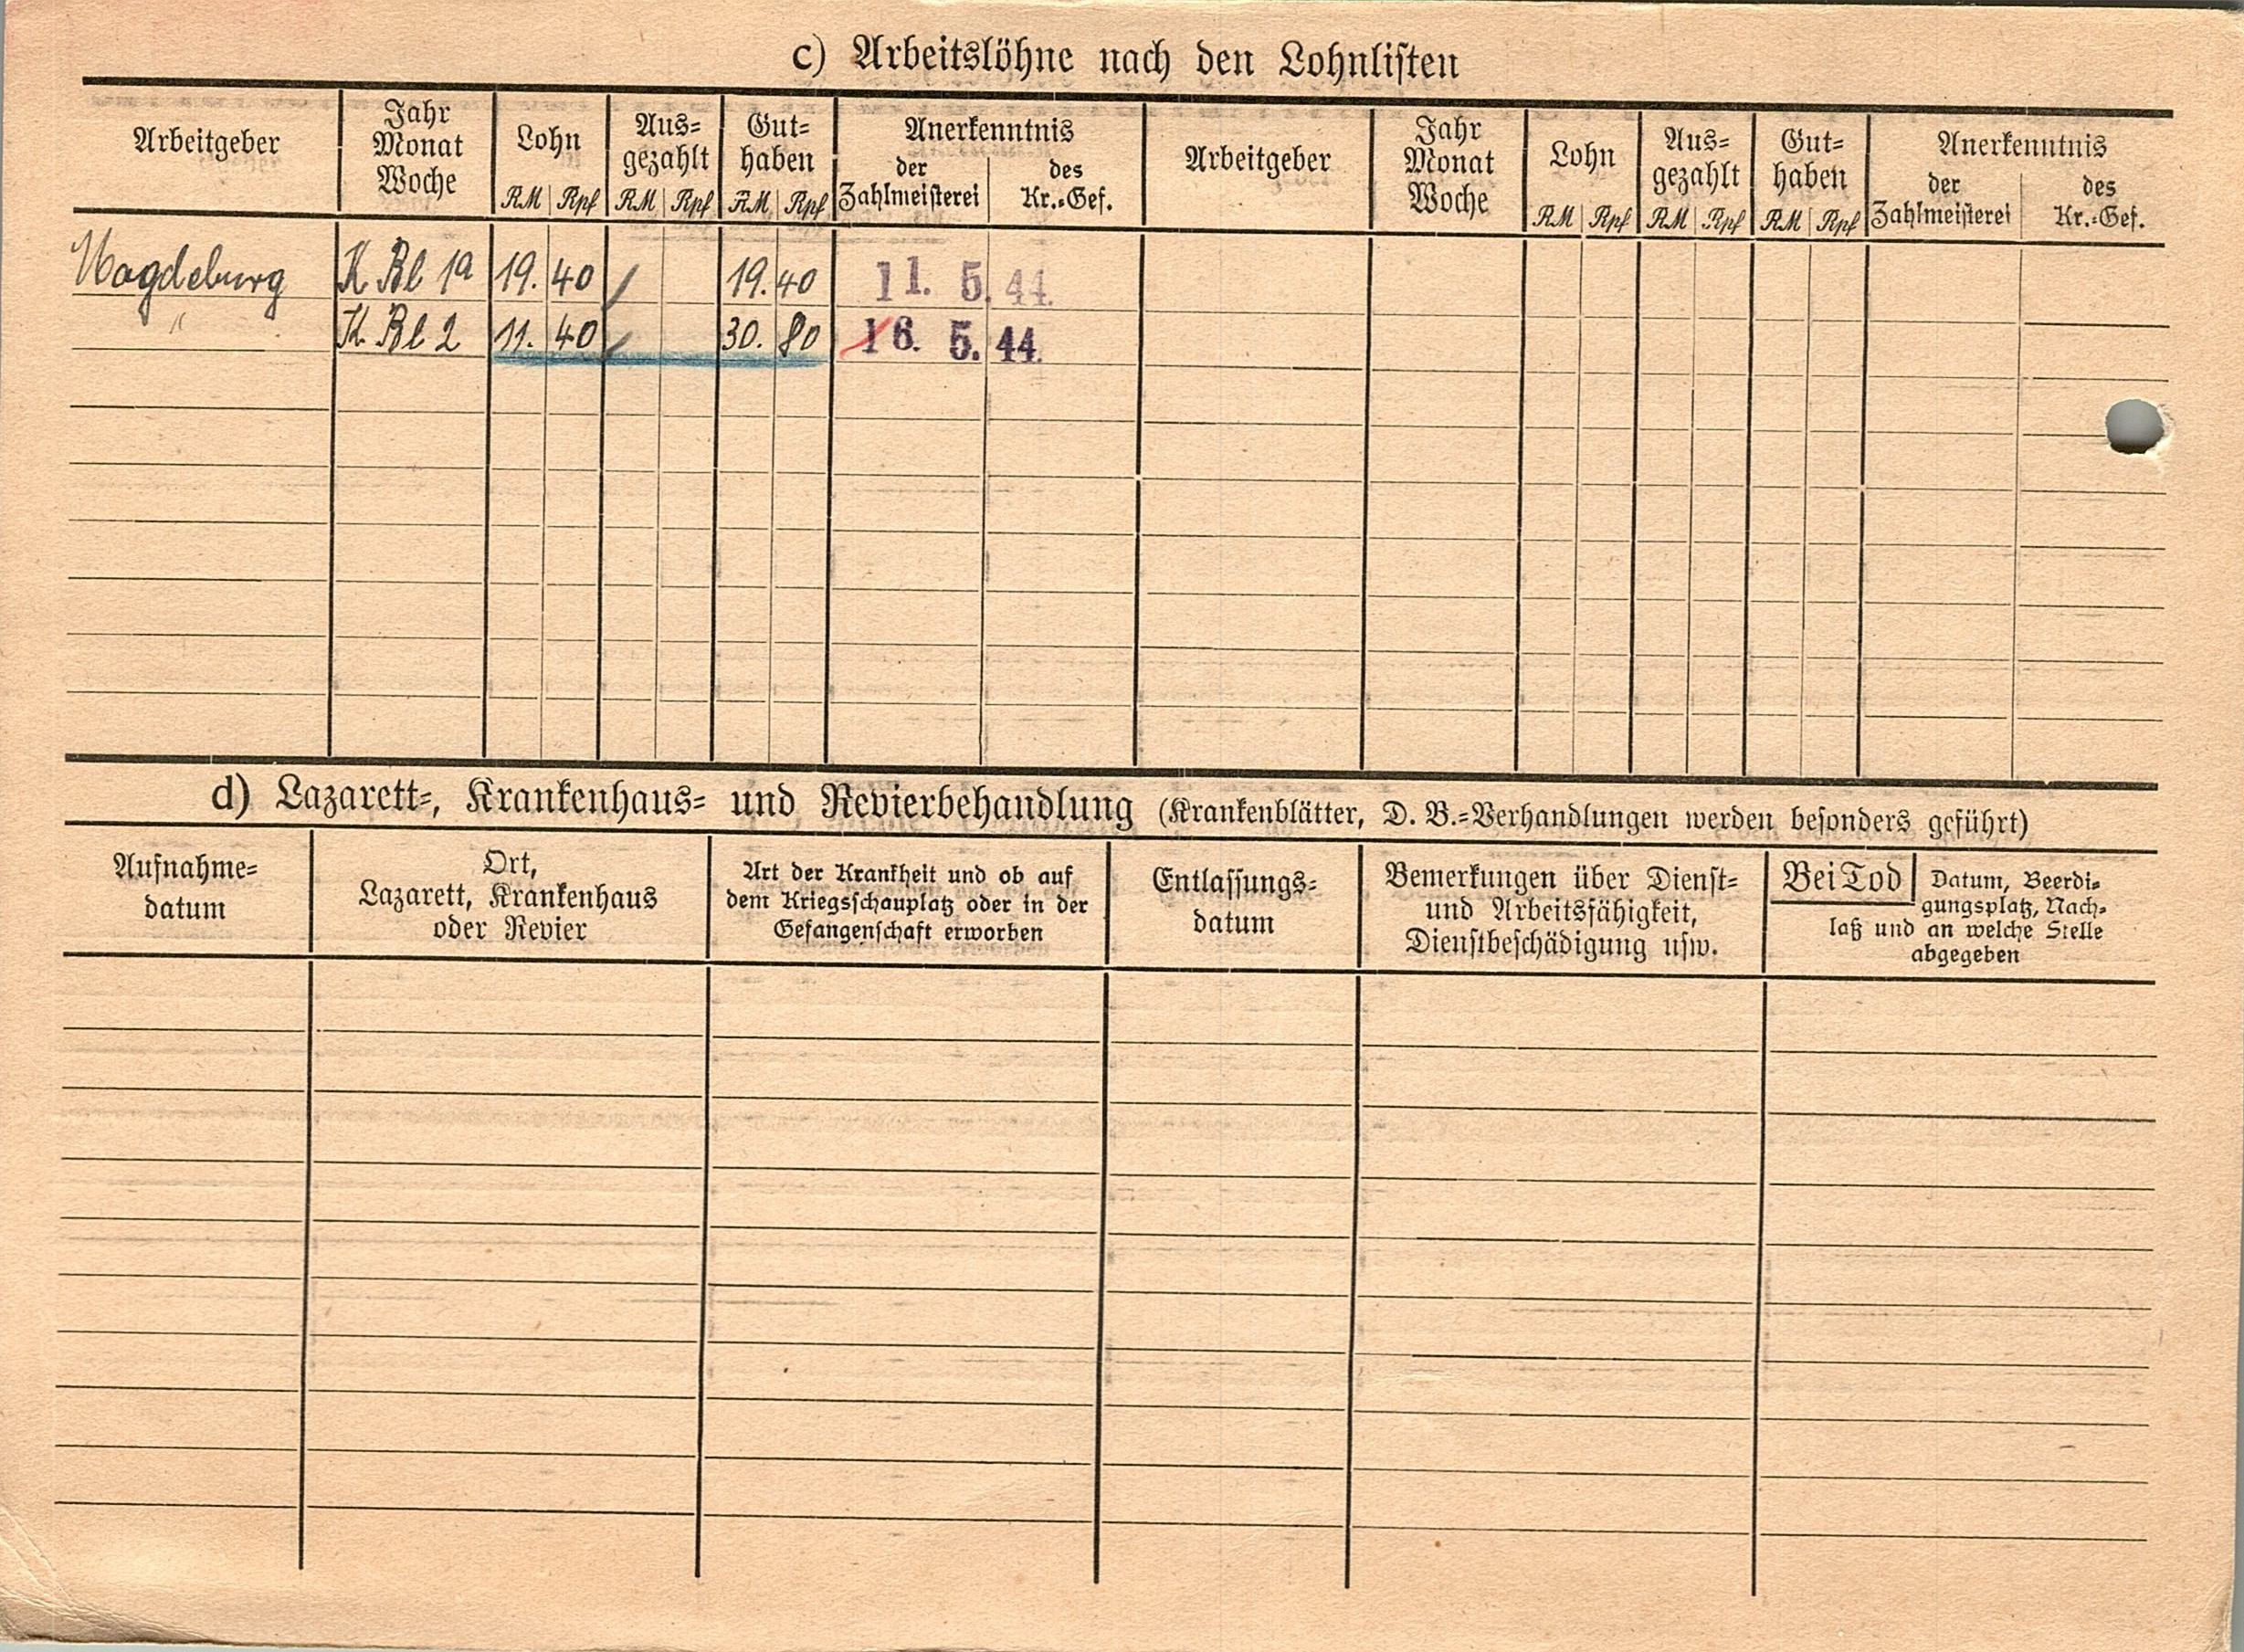 c) Arbeitslöhne nach den Lohnlisten
Arbeitgeber
Jahr
Monat
Woche
Lohn
RM Rpf
Aus=
gezahlt
RM Rpf
Gut=
haben
RM Rpf
Anerkenntnis
der
Zahlmeisterei
des
Kr.=Gef.
Arbeitgeber
Jahr
Monat
Woche
Lohn
RM Rpf
Aus=
gezahlt
RM Rpf
Gut=
haben
RM Rpf
Anerkenntnis
der
Zahlmeisterei
des
Kr.=Gef.
Magdeburg K. Bl 1a 19. 40 / 19. 40 11. 5. 44.
" K. Bl 2 11. 40 / 30. 80 16. 5. 44.
d) Lazarett=, Krankenhaus= und Revierbehandlung (Krankenblätter, D. B.=Verhandlungen werden besonders geführt)
Aufnahme=
datum
Ort,
Lazarett, Krankenhaus
oder Revier
Art der Krankheit und ob auf
dem Kriegsschauplatz oder in der
Gefangenschaft erworben
Entlassungs=
datum
Bemerkungen über Dienst=
und Arbeitsfähigkeit,
Dienstbeschädigung usw.
Bei Tod Datum, Beerdi=
gungsplatz, Nach=
laß und an welche Stelle
abgegeben